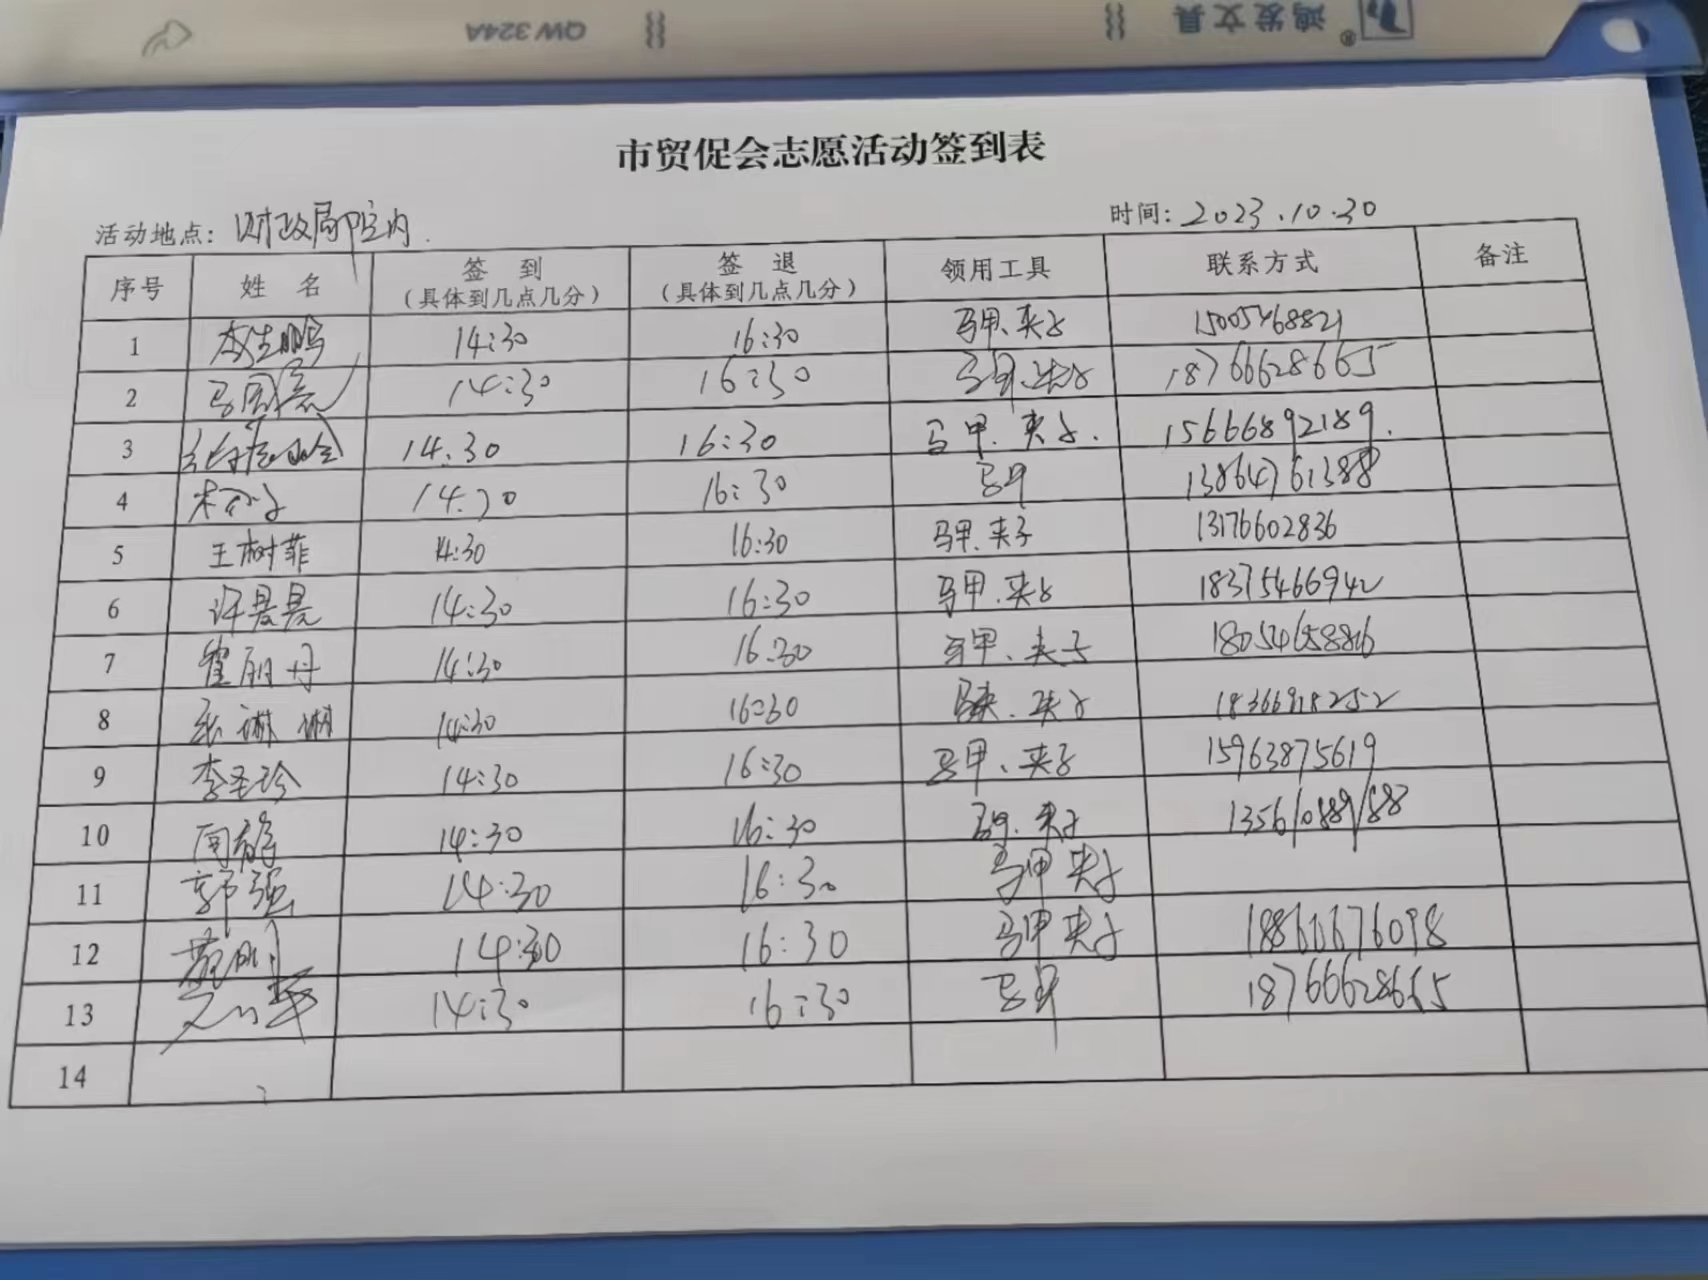 鸿发文具®
QW 324A
市贸促会志愿活动签到表
活动地点：财政局院内. 时间：2023.10.30
序号 姓 名 签 到 （具体到几点几分） 签 退 （具体到几点几分） 领用工具 联系方式 备注
1 李生鹏 14:30 16:30 马甲、夹子 15005468821
2 马国亮 14:30 16:30 马甲、夹子 18766628665
3 14:30 16:30 马甲、夹子. 15666892189.
4 14:30 16:30 马甲 13864761388
5 王树菲 14:30 16:30 马甲、夹子 13176602836
6 许晨晨 14:30 16:30 马甲、夹子 18375466942
7 霍丽丹 14:30 16:30 马甲、夹子 18054658816
8 张琳琳 14:30 16:30 夹子
9 李圣玲 14:30 16:30 马甲、夹子 15963875619
10 14:30 16:30 马甲、夹子
11 郭强 14:30 16:30 马甲 夹子
12 14:30 16:30 马甲 夹子 18861676098
13 14:30 16:30 马甲 18766628665
14